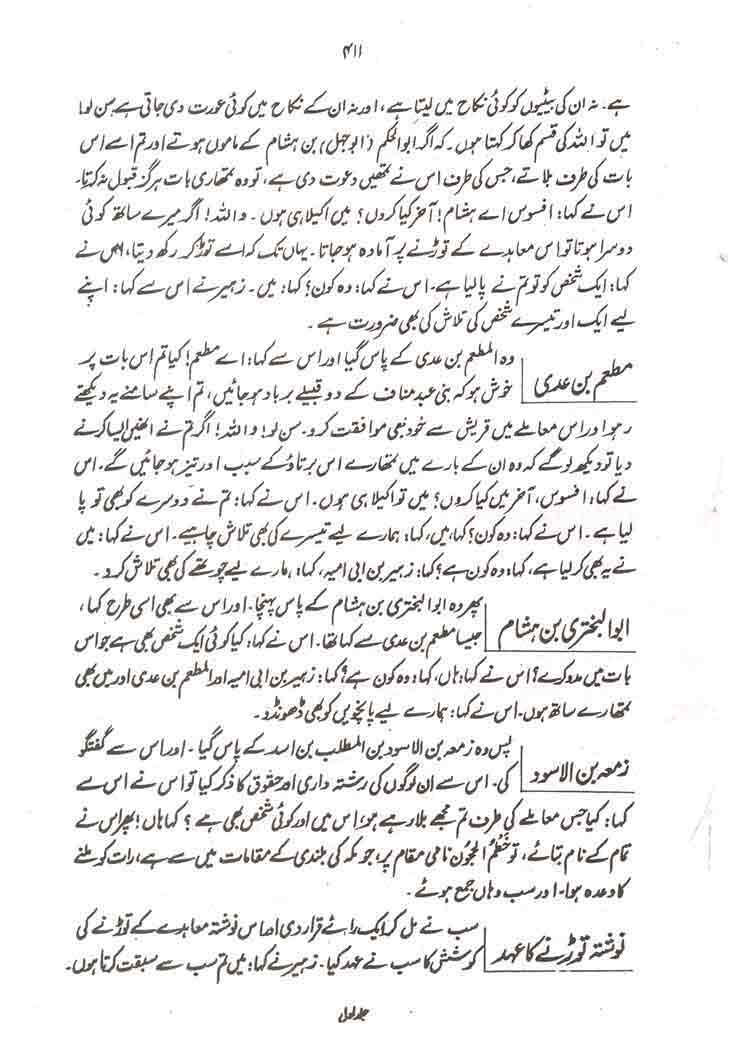 ۴۱۱
ہے۔ نہ ان کی بیٹیوں کو کوئی نکاح میں لیتا ہے، اور نہ ان کے نکاح میں کوئی عورت دی جاتی ہے سن لو!
میں تو اللہ کی قسم کھا کر کہتا ہوں۔ کہ اگر ابوالحکم (ابوجہل) بن ہشام کے ماموں ہوتے اور تم اسے اس
بات کی طرف بلاتے، جس کی طرف اس نے تمھیں دعوت دی ہے، تو وہ تمھاری بات ہرگز قبول نہ کرتا۔
اس نے کہا: افسوس اے ہشام! آخر کیا کروں؟ میں اکیلا ہی ہوں۔ واللہ! اگر میرے ساتھ کوئی
دوسرا ہوتا تو اس معاہدے کے توڑنے پر آمادہ ہو جاتا۔ یہاں تک کہ اسے توڑ کر رکھ دیتا، اس نے
کہا: ایک شخص کو تو تم نے پالیا ہے۔ اس نے کہا: وہ کون؟ کہا: میں۔ زہیر نے اس سے کہا: اپنے
لیے ایک اور تیسرے شخص کی تلاش کی بھی ضرورت ہے۔
مطعم بن عدی
وہ المطعم بن عدی کے پاس گیا اور اس سے کہا: اے مطعم! کیا تم اس بات پر
خوش ہو کہ بنی عبد مناف کے دو قبیلے برباد ہو جائیں، تم اپنے سامنے یہ دیکھتے
رہو اور اس معاملے میں قریش سے خود بھی موافقت کرو۔ سن لو! واللہ! اگر تم نے انھیں ایسا کرنے
دیا تو دیکھ لو گے کہ وہ ان کے بارے میں تمھارے اس برتاؤ کے سبب اور تیز ہو جائیں گے۔ اس
نے کہا: افسوس، آخر میں کیا کروں؟ میں تو اکیلا ہی ہوں۔ اس نے کہا: تم نے دوسرے کو بھی تو پا
لیا ہے۔ اس نے کہا: وہ کون؟ کہا، میں، کہا: ہمارے لیے تیسرے کی بھی تلاش چاہیے۔ اس نے کہا: میں
نے یہ بھی کر لیا ہے، کہا: وہ کون ہے؟ کہا: زہیر بن ابی امیہ، کہا: ہمارے لیے چوتھے کی بھی تلاش کرو۔
ابوالبختری بن ہشام
پھر وہ ابوالبختری بن ہشام کے پاس پہنچا۔ اور اس سے بھی اسی طرح کہا،
جیسا مطعم بن عدی سے کہا تھا۔ اس نے کہا: کیا کوئی ایک شخص بھی ہے جو اس
بات میں مدد کرے؟ اس نے کہا: ہاں، کہا: وہ کون ہے؟ کہا: زہیر بن ابی امیہ اور المطعم بن عدی اور میں بھی
تمھارے ساتھ ہوں۔ اس نے کہا: ہمارے لیے پانچویں کو بھی ڈھونڈو۔
زمعہ بن الاسود
پس وہ زمعہ بن الاسود بن المطلب بن اسد کے پاس گیا۔ اور اس سے گفتگو
کی۔ اس سے ان لوگوں کی رشتہ داری اور حقوق کا ذکر کیا تو اس نے اس سے
کہا: کیا جس معاملے کی طرف تم مجھے بلا رہے ہو، اس میں اور کوئی شخص بھی ہے؟ کہا ہاں! پھر اس نے
تمام کے نام بتائے، تو خَطْمُ الحجُون نامی مقام پر، جو مکہ کی بلندی کے مقامات میں سے ہے، رات کو ملنے
کا وعدہ ہوا۔ اور سب وہاں جمع ہوئے۔
نوشتہ توڑنے کا عہد
سب نے مل کر ایک رائے قرار دی اور اس نوشتہ معاہدے کے توڑنے کی
کوشش کا سب نے عہد کیا۔ زہیر نے کہا: میں تم سب سے سبقت کرتا ہوں۔
جلد اول